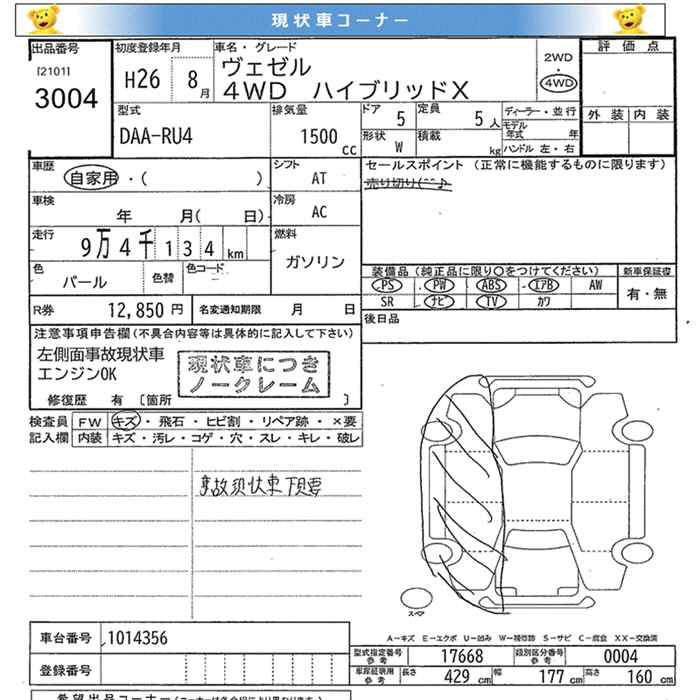 現状車コーナー
出品番号 初度登録年月 車名・グレード 評価点
[2101] H26 8月 ヴェゼル 2WD
3004 4WD ハイブリッドX 4WD
型式 排気量 ドア 定員 ディーラー・並行 外装 内装
DAA-RU4 1500cc 5 5人 モデル年式 年
形状 W 積載 kg ハンドル 左・右
車歴 シフト セールスポイント (正常に機能するものに限ります)
自家用・( ) AT 売り切り(^^♪
車検 冷房
年 月( 日) AC
走行 燃料
9万4千134km ガソリン
色 色替 色コード 装備品 (純正品に限り○をつけてください) 新車保証書
パール PS PW ABS エアB AW 有・無
SR ナビ TV カワ
R券 12,850円 名変通知期限 月 日 後日品
注意事項申告欄(不具合内容等は具体的に記入して下さい)
左側面事故現状車
エンジンOK
現状車につき
ノークレーム
修復歴 有 〔箇所 〕
検査員 FW キズ・飛石・ヒビ割・リペア跡・×要
記入欄 内装 キズ・汚レ・コゲ・穴・スレ・キレ・破レ
事故現状車下見要
スペア
A-キズ E-エクボ U-凹み W-補修跡 S-サビ C-腐食 XX-交換済
車台番号 1014356
型式指定番号 参考 17668 類別区分番号 参考 0004
登録番号
車庫証明用 参考 長さ 429cm 幅 177cm 高さ 160cm
希望出品コーナー